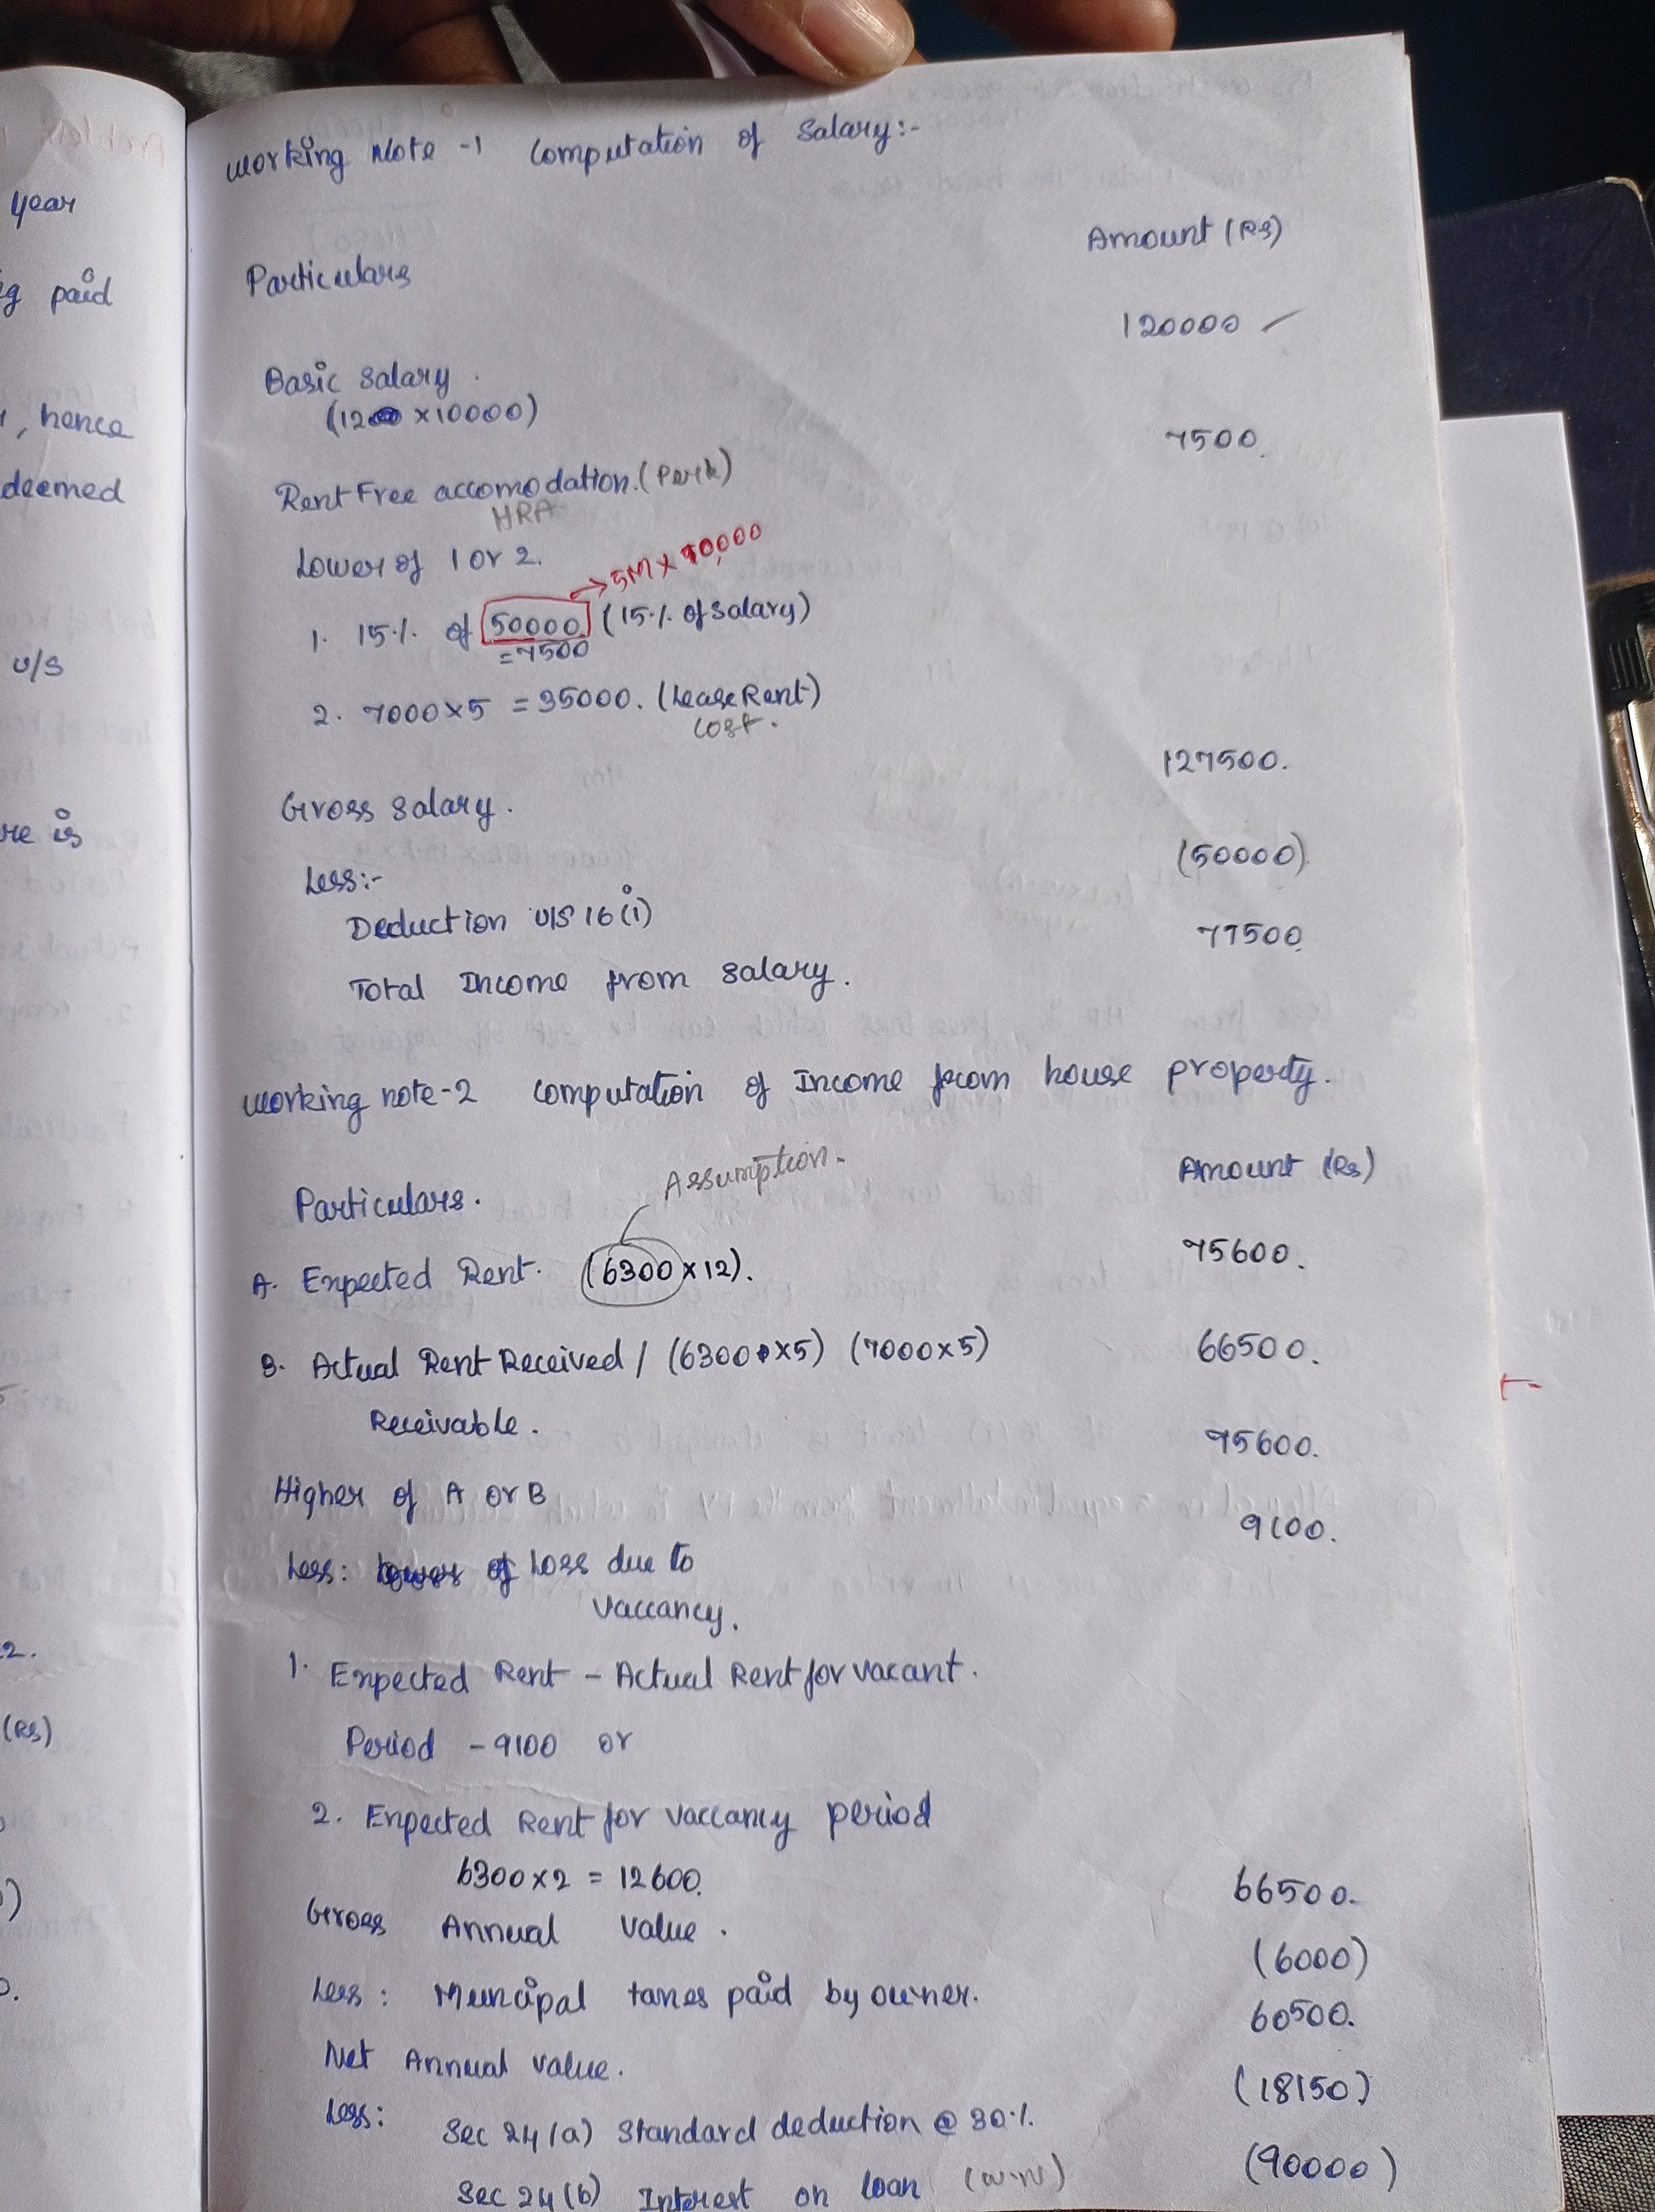 year
paid
, hence
deemed
U/S
is
2.
(Rs)
Working Note -1 Computation of Salary:-
Particulars Amount (Rs)
Basic Salary. 120000
(12 x10000)
Rent Free accomodation. (Perk) 7500.
HRA
Lower of 1 or 2.
→5M x 10,000
1. 15% of 50000 (15% of Salary)
=7500
2. 7000x5 = 35000. (Lease Rent)
Cost.
Gross Salary. 127500.
Less:- (50000)
Deduction U/S 16(i)
Total Income from Salary. 77500.
Working note-2 Computation of Income from house property.
Assumption.
Particulars. Amount (Rs)
A. Expected Rent. (6300x12). 75600.
B. Actual Rent Received / (6300x5) (7000x5) 66500.
Receivable.
Higher of A or B 75600.
Less: Loss due to 9100.
Vaccancy.
1. Expected Rent - Actual Rent for vacant.
Period - 9100 or
2. Expected Rent for vaccancy period
6300x2 = 12600.
Gross Annual Value. 66500.
Less: Muncipal taxes paid by owner. (6000)
Net Annual Value. 60500.
Less: Sec 24(a) Standard deduction @ 30%. (18150)
Sec 24(b) Interest on loan (W.N) (90000)